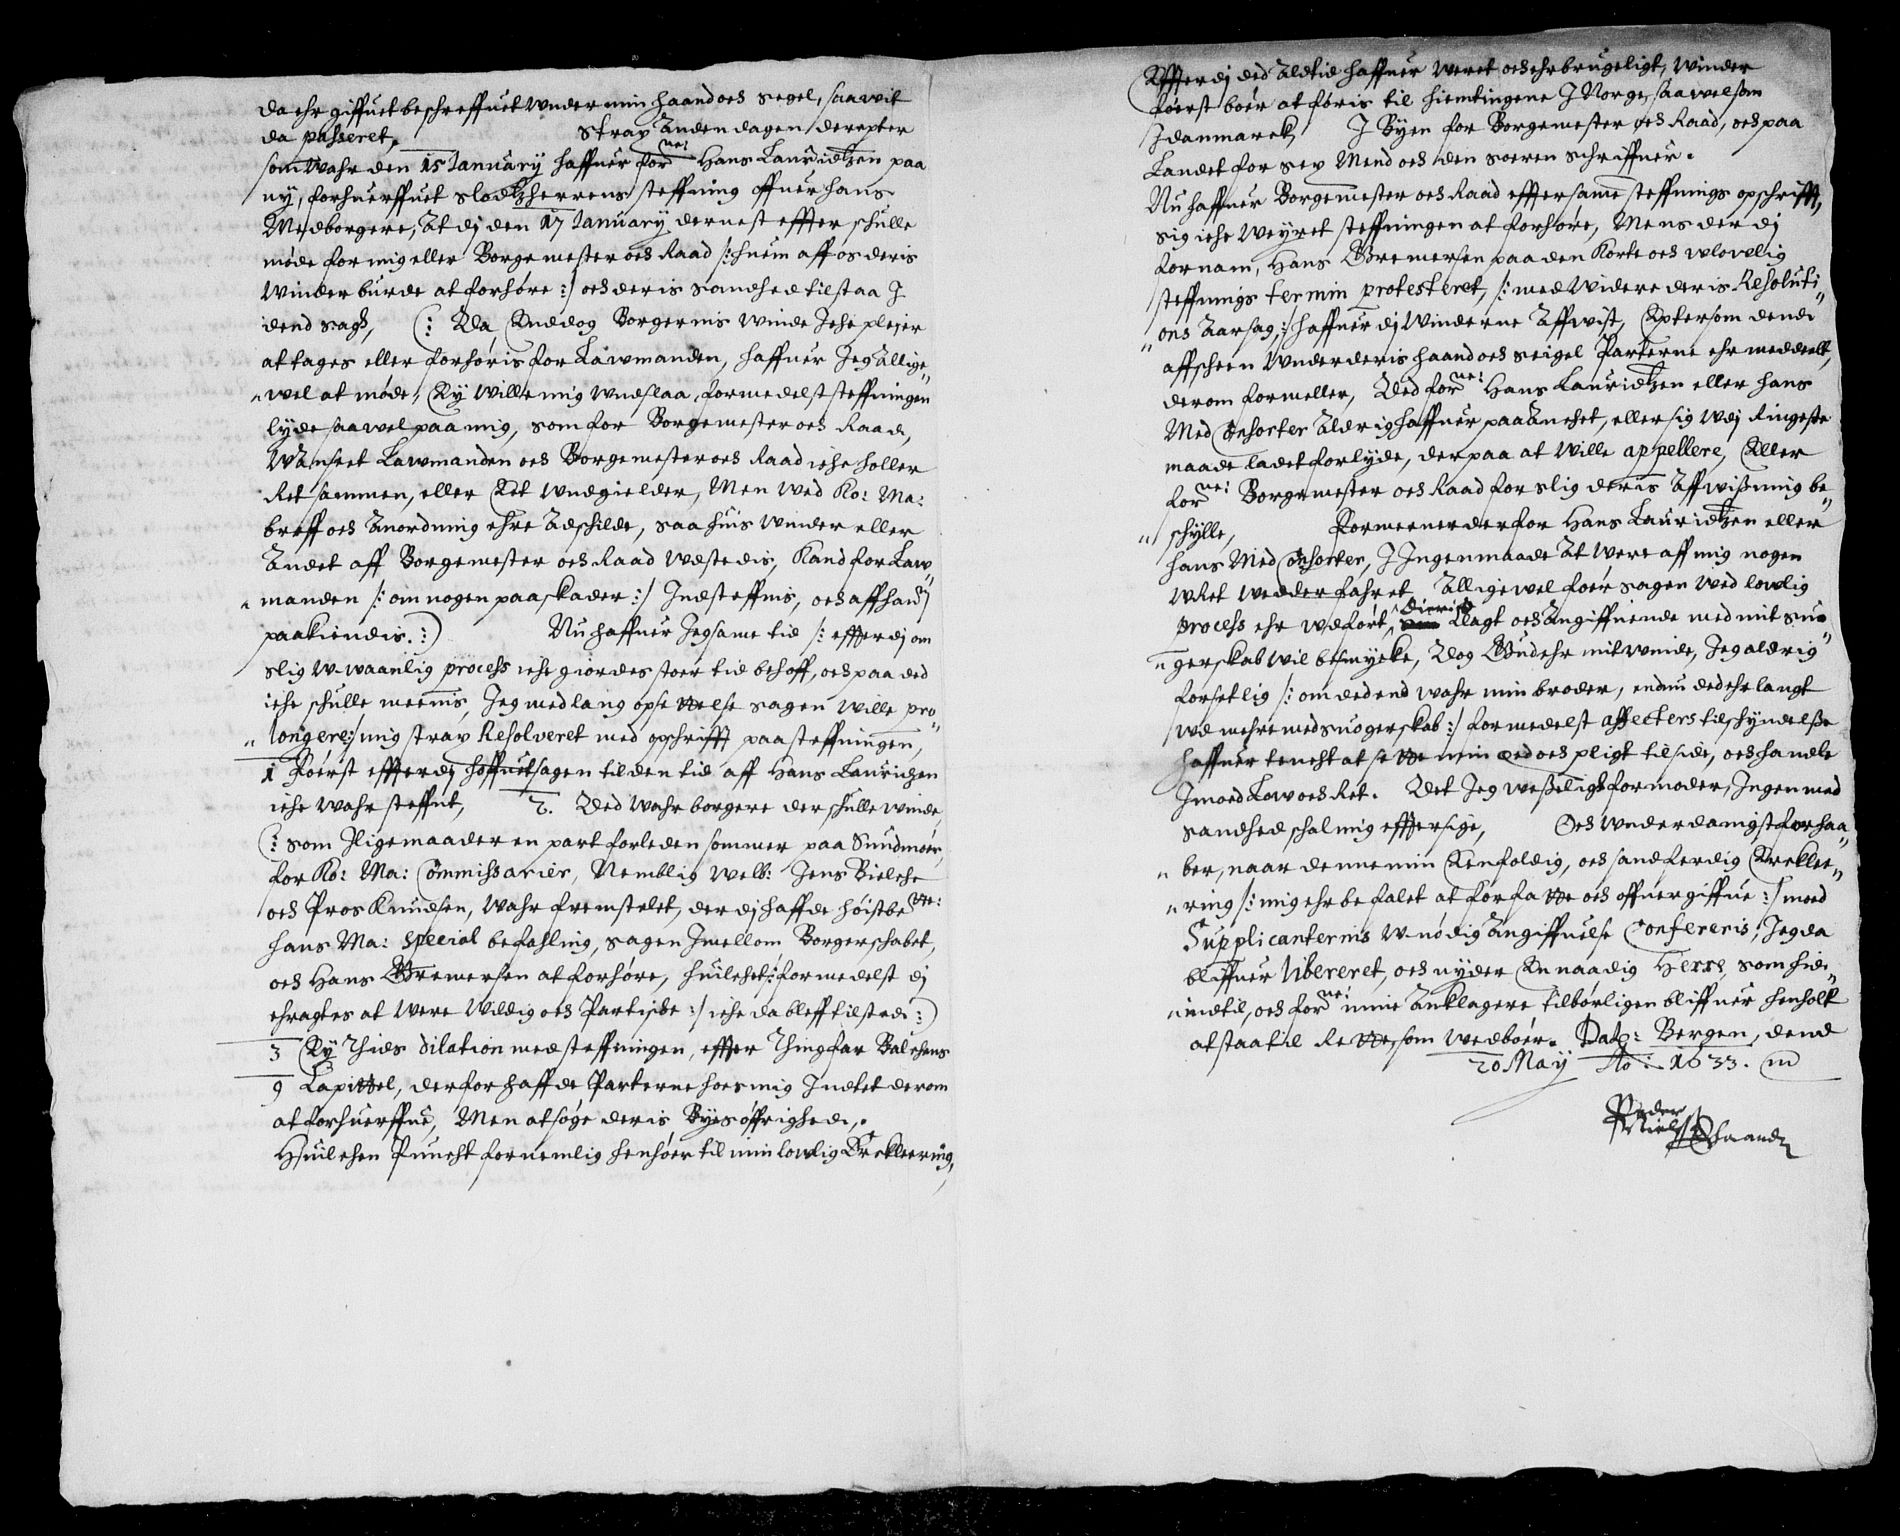 da ehr giffuet beschreffuet under min haand och segel, saa wit
da passeret. Strax Anden dagen derepter
som wahr den 15 January haffuer forne: Hans Lauridtzen paa
ny, forhuerffuet Slodtzherrens steffning offuer hans
Medborgere, At dj den 17 January dernest effter schulle
møde for mig eller Borgemester och Raad /: huem aff os deris
Winder burde at forhøre :/ och deris sandhed tilstaa J
dend sagh, (: Da Enddog Borgernis winde Iche plejer
at tages eller forhøris for Lawmanden, haffuer Jeg Allige„
„wel at møde, Ey wille mig undslaa, formedelst steffningen
lyde saa wel paa mig, som for Borgemester och Raad,
Wanseet Lawmanden och Borgemester och Raad iche holler
Ret sammen, eller Ret undgielder, Men wed Ko: Ma:
breff och Anordning ehre Adschilde, saa huis winder eller
Andet aff Borgemester och Raad udstedis, Kand for Law„
„manden /: om nogen paaskader :/ Indsteffnis, och aff hanj
paakiendis. :) Nu haffuer Jeg same tid /: effterdj om
slig w-waanlig process iche giordes stoer tid behoff, och paa ded
iche schulle meenis, Jeg med lang opsettelse sagen wille pro„
„longere :/ mig strax Resolveret med opschrifft paa steffningen,
1 Føerst effterdj hoffuetsagen til den tid aff Hans Lauridzen
iche wahr steffnt, 2. Ded wahr borgere der schulle winde,
(: som Iligemaade er en part forleden sommer paa Sundmøer,
for Ko: Ma: Commissarier, Nemblig welb: Jens Bielche
och Pros Knudsen, wahr fremstelet, der dj haffde høistbete:
hans Ma: special befahling, sagen Jmellom Borgerschabet,
och Hans Gremersen at forhøre, huilchet :/ formedelst dj
ehragtes at were willdig och Partiske :/ iche da bleff tilsted :)
3 Ey Thids dilation med steffningen, effter Thingfar Balchens
9 Kapittel, derfor haffde Parterne hoes mig Indtet derom
at forhuerffue, Men at søge deris Byes øffrighed,.
Huilchen Puncht fornemlig henhøer til min lowlig Erkleering,
Effterdj ded Altid haffuer weret och ehr brugeligt, winder
føerst boer at føris til hiemtingene J Norge, saa wel som
Jdanmarck, J Byen for Borgemester och Raad, och paa
Landet for sex Mend och den soeren schriffuer.
Nu haffuer Borgemester och Raad effter same steffnings opschrifft,
sig iche weyret steffningen at forhøre, Mens der dj
fornam, Hans Gremersen paa den Korte och wlowlig
steffnings termin protesteret, /: med widere deris Resoluti„
„ons Aarsag :/ haffuer dj winderne Affwist, Eptersom dend
affscheen under deris haand och seigel Parterne ehr meddeelt,
derom formeller, Ded forne: Hans Lauridtzen eller hans
Med Consorter Aldrig haffuer paa Anchet, eller sig udj Ringeste
maade ladet forlyde, der paa at wille appellere, Eller
forne: Borgemester och Raad for slig deris Affwißning be„
„schylle, Formeener derfor Hans Lauridtzen eller
hans Med Consorter, J Jngen maade At were aff mig nogen
uRet wedderfahret, Alligewel foer sagen wed lowlig
process ehr udført, dieris Klagt och Angiffuende med mit suo„
„gerskab wil besmycke, Dog Gud ehr mit winde, Jeg aldrig
forsetlig /: om ded end wahr min broder, endnu ded ehr langt
ud mehre med suogerskab :/ formedelst affecters tilschyndelße
haffuer tencht at sette min eed och pligt til side, och handle
Jmoed Low och Ret. Det Jeg weßeligt formoder, Jngen med
sandhed schal mig effttersige, Och underdanigst forhaa„
„ber, naar denne min Eenfoldig, och sandferdig Erklee„
„ring /: mig ehr befalet at forfatte och offuergiffue :/ moed
Supplicanternis w-nødig Angiffuelse Confereris, Jeg da
bliffuer libereret, och nyder En naadig Herre, som hid„
„indtil, och forne: mine Anklagere tilbørligen bliffuer henholt
at staa til Rette, som wedboer. Dat: Bergen, dend
20 May Ao: 1633.
Peder
Nielßen
Ehaand